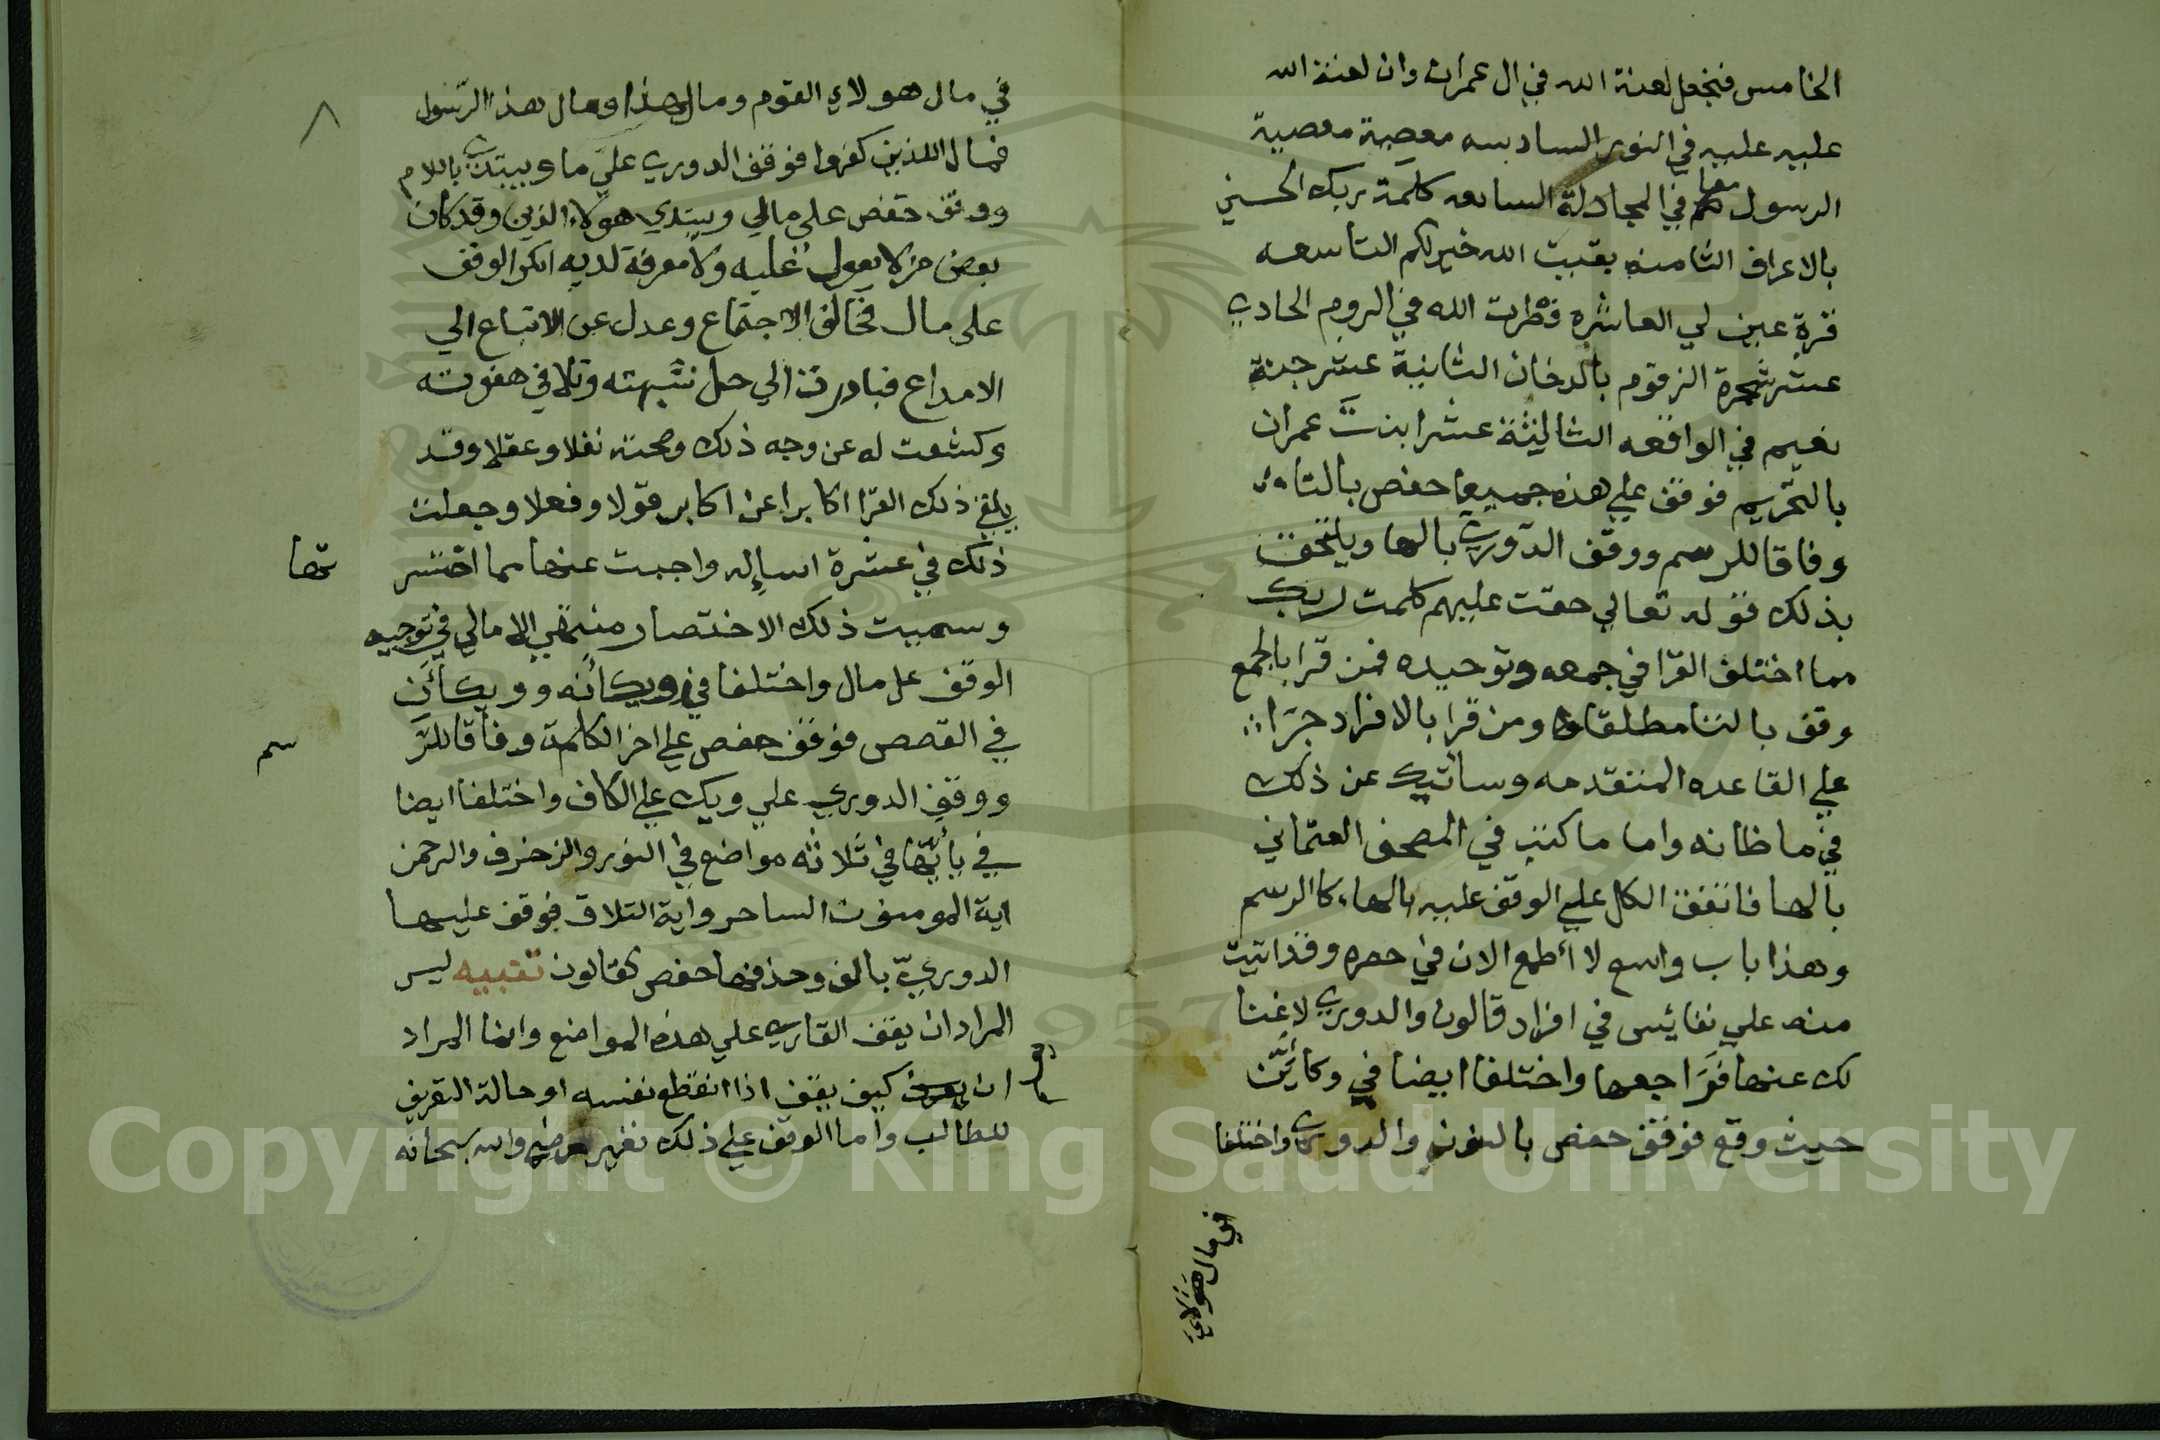 الخامس فنجعل لعنة الله في ال عمران وان لعنة الله
عليه عليه في النور السادسه معصية معصية
الرسول معا في المجادلة السابعه كلمة ربك الحسني
بالاعراف الثامنه بقيت الله خير لكم التاسعه
قرة عين لي العاشره فطرت الله في الروم الحادي
عشر شجرة الزقوم بالدخان الثانية عشر جنة
نعيم في الواقعه الثالثة عشر ابنت عمران
بالتحريم فوقف علي هذه جميعا حفص بالتاء
وفاقا للرسم ووقف الدوري بالها ويلتحق
بذلك قوله تعالي حقت عليهم كلمت ربك
مما اختلف القرا في جمعه وتوحيده فمن قرا بالجمع
وقف بالتا مطلقا ومن قرا بالافراد جرا
علي القاعده المتقدمه وسأتيك عن ذلك
في ماظانه واما ما كتب في المصحف العثماني
بالها فاتفق الكل علي الوقف عليه بالهاء كالرسم
وهذا باب واسع لا أطمع الان في حصره وقد اتيت
منه علي نفايس في افراد قالون والدوري لا غنا
لك عنها فراجعها واختلفا ايضا في وكاين
حيث وقع فوقف حفص بالنون والدوري واختلفا
في مال هولاء
في مال هولاء القوم ومال هذا ومال هذا الرسول
فمال اللذين كفروا فوقف الدوري علي ما ويبتدي باللام
ووقف حفص علي مالي ويبتدي هولاء الذين وقد كان
بعض من لا يعول عليه ولا معرفة لديه انكر الوقف
علي مال فخالف الاجتماع وعدل عن الاتباع الي
الامداع فبادرت الي حل شبهته وتلافي هفوته
وكشفت له عن وجه ذلك وصحته نقلا وعقلا وقد
بلغ ذلك القرا اكابرا عن اكابر قولا وفعلا وجعلت
ذلك في عشرة اسإله واجبت عنها مما اختسر
تها
وسميت ذلك الاختصار منتهي الامالي في توجيه
الوقف عل مال واختلفا في ويكأنه وويكأن
في القصص فوقف حفص علي اخر الكلمة وفاقا للر
سم
ووقف الدوري علي ويك علي الكاف واختلفا ايضا
في يأيها في ثلاثه مواضع في النور والزخرف والرحمن
اية المومنون الساحر واية التلاق فوقف عليها
الدوري بالف وحذفها حفص كقالون تنبيه ليس
المراد ان يقف القاري علي هذه المواضع وانما المراد
ان يعرف كيف يقف اذا انقطع نفسه او حالة التعريف
للطالب واما الوقف علي ذلك فغير مرضي والله سبحانه
Copyright © King Saud University
1957